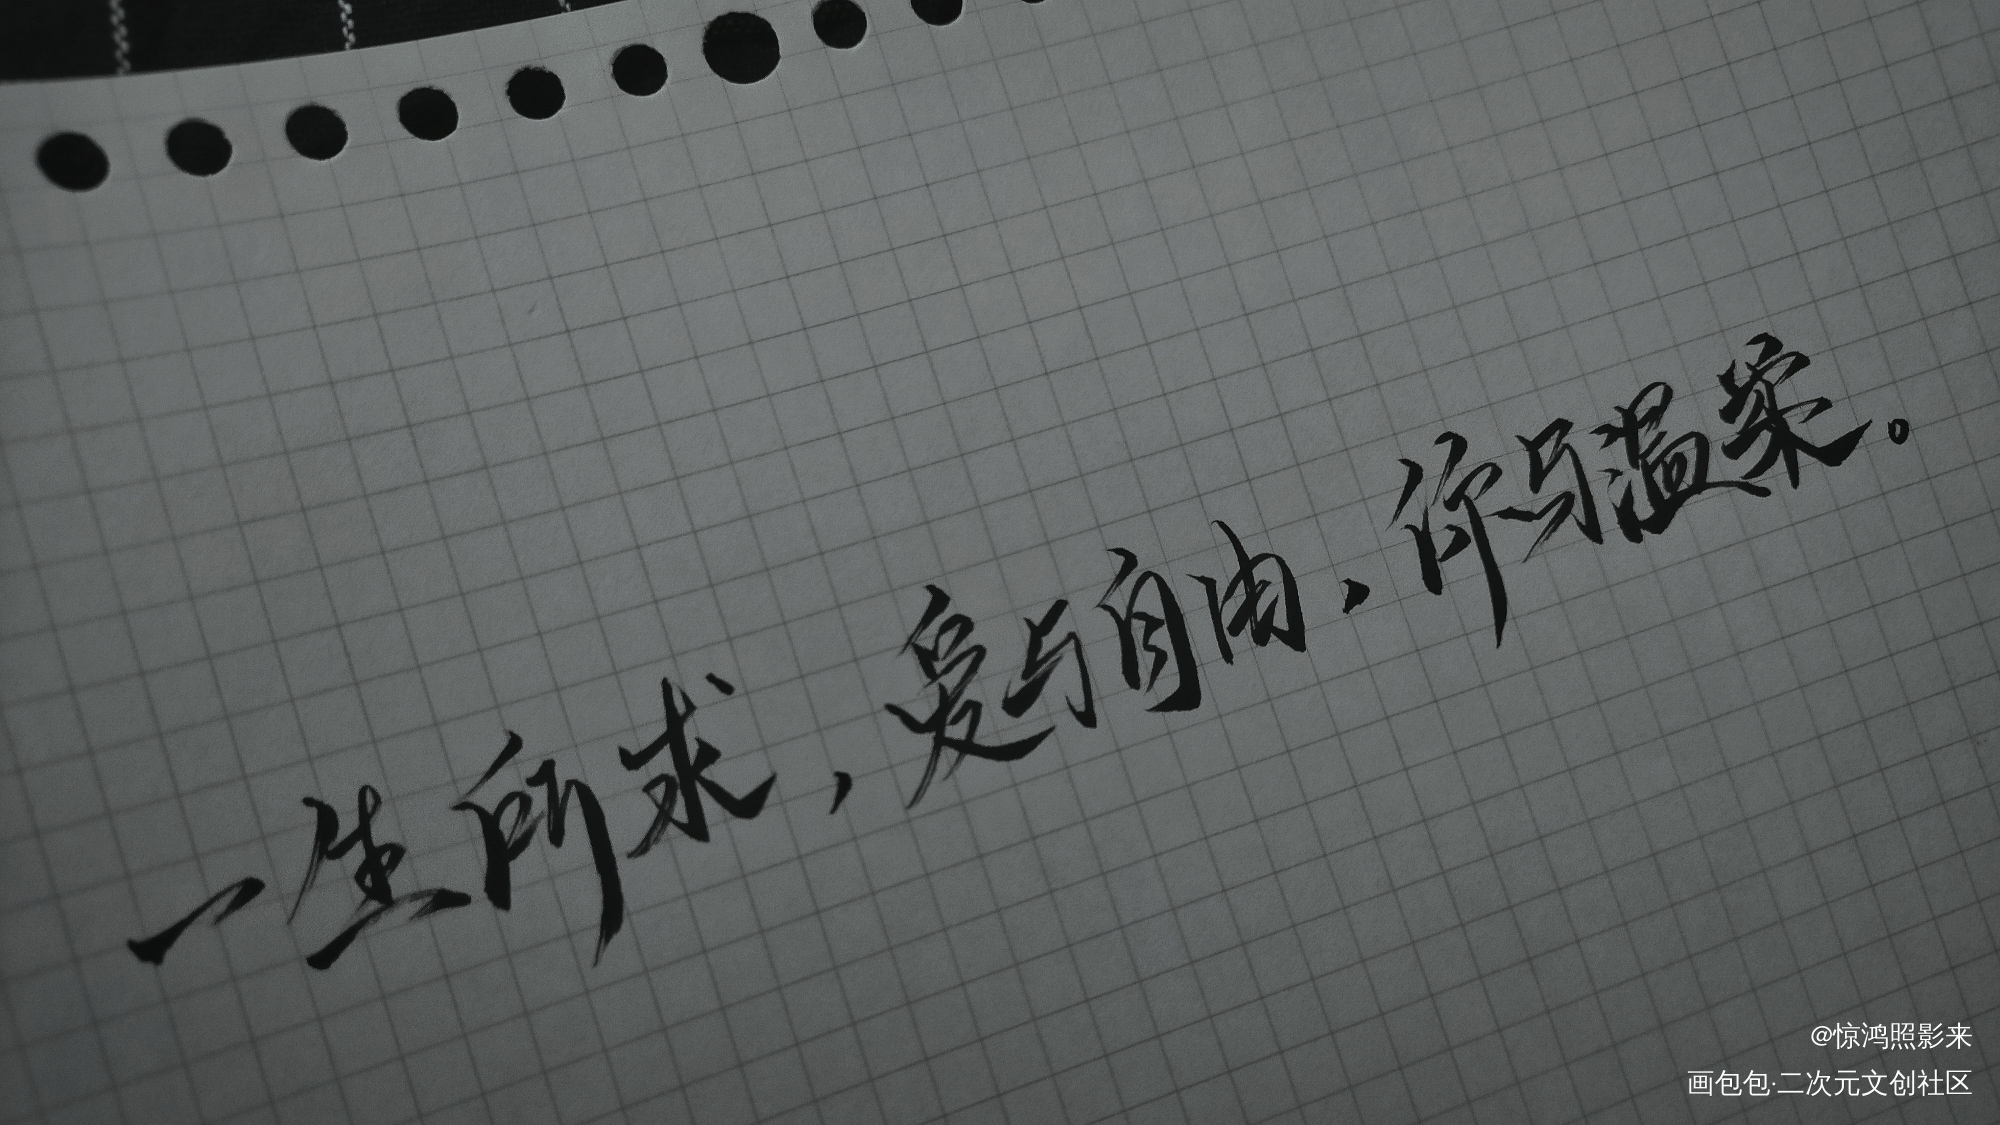 一生所求，爱与自由、你与温柔。
@惊鸿照影来
画包包·二次元文创社区